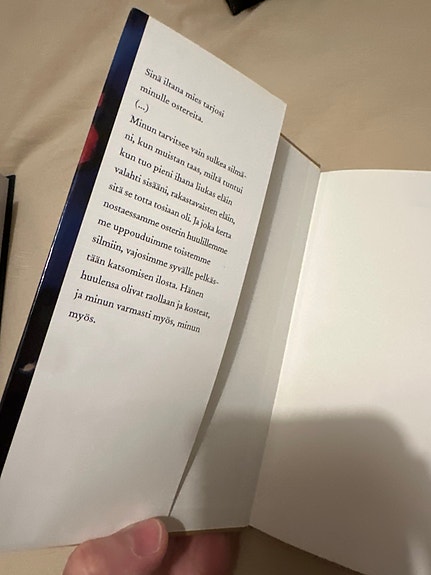 Sinä iltana mies tarjosi
minulle ostereita.
(...)
Minun tarvitsee vain sulkea silmä-
ni, kun muistan taas, miltä tuntui
kun tuo pieni ihana liukas eläin
valahti sisääni, rakastavaisten eläin,
sitä se totta tosiaan oli. Ja joka kerta
nostaessamme osterin huulillemme
me uppouduimme toistemme
silmiin, vajosimme syvälle pelkäs-
tään katsomisen ilosta. Hänen
huulensa olivat raollaan ja kosteat,
ja minun varmasti myös, minun
myös.